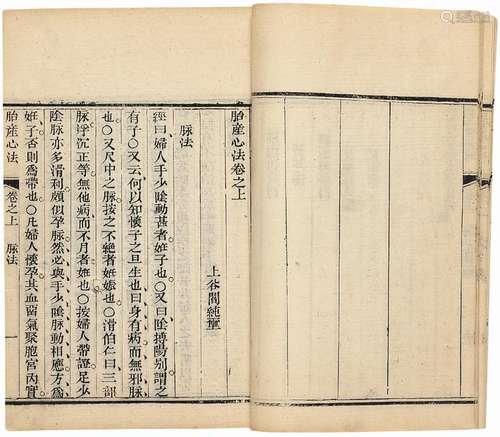 胎產心法卷之上
上谷閻純璽
脉法
經曰婦人手少陰動甚者姙子也〇又曰陰搏陽別謂之
有子〇又云何以知懷子之旦生也曰身有病而無邪脉
也〇又尺中之脉按之不絶者姙娠也〇滑伯仁曰三部
脉浮沉正等無他病而不月者姙也〇按婦人帶證足少
陰脉亦多滑利頗似孕脉然必與手少陰脉動相應方為
姙子否則為帶也〇凡婦人懷孕其血留氣聚胞宮內實
胎產心法 卷之上 脉法 一